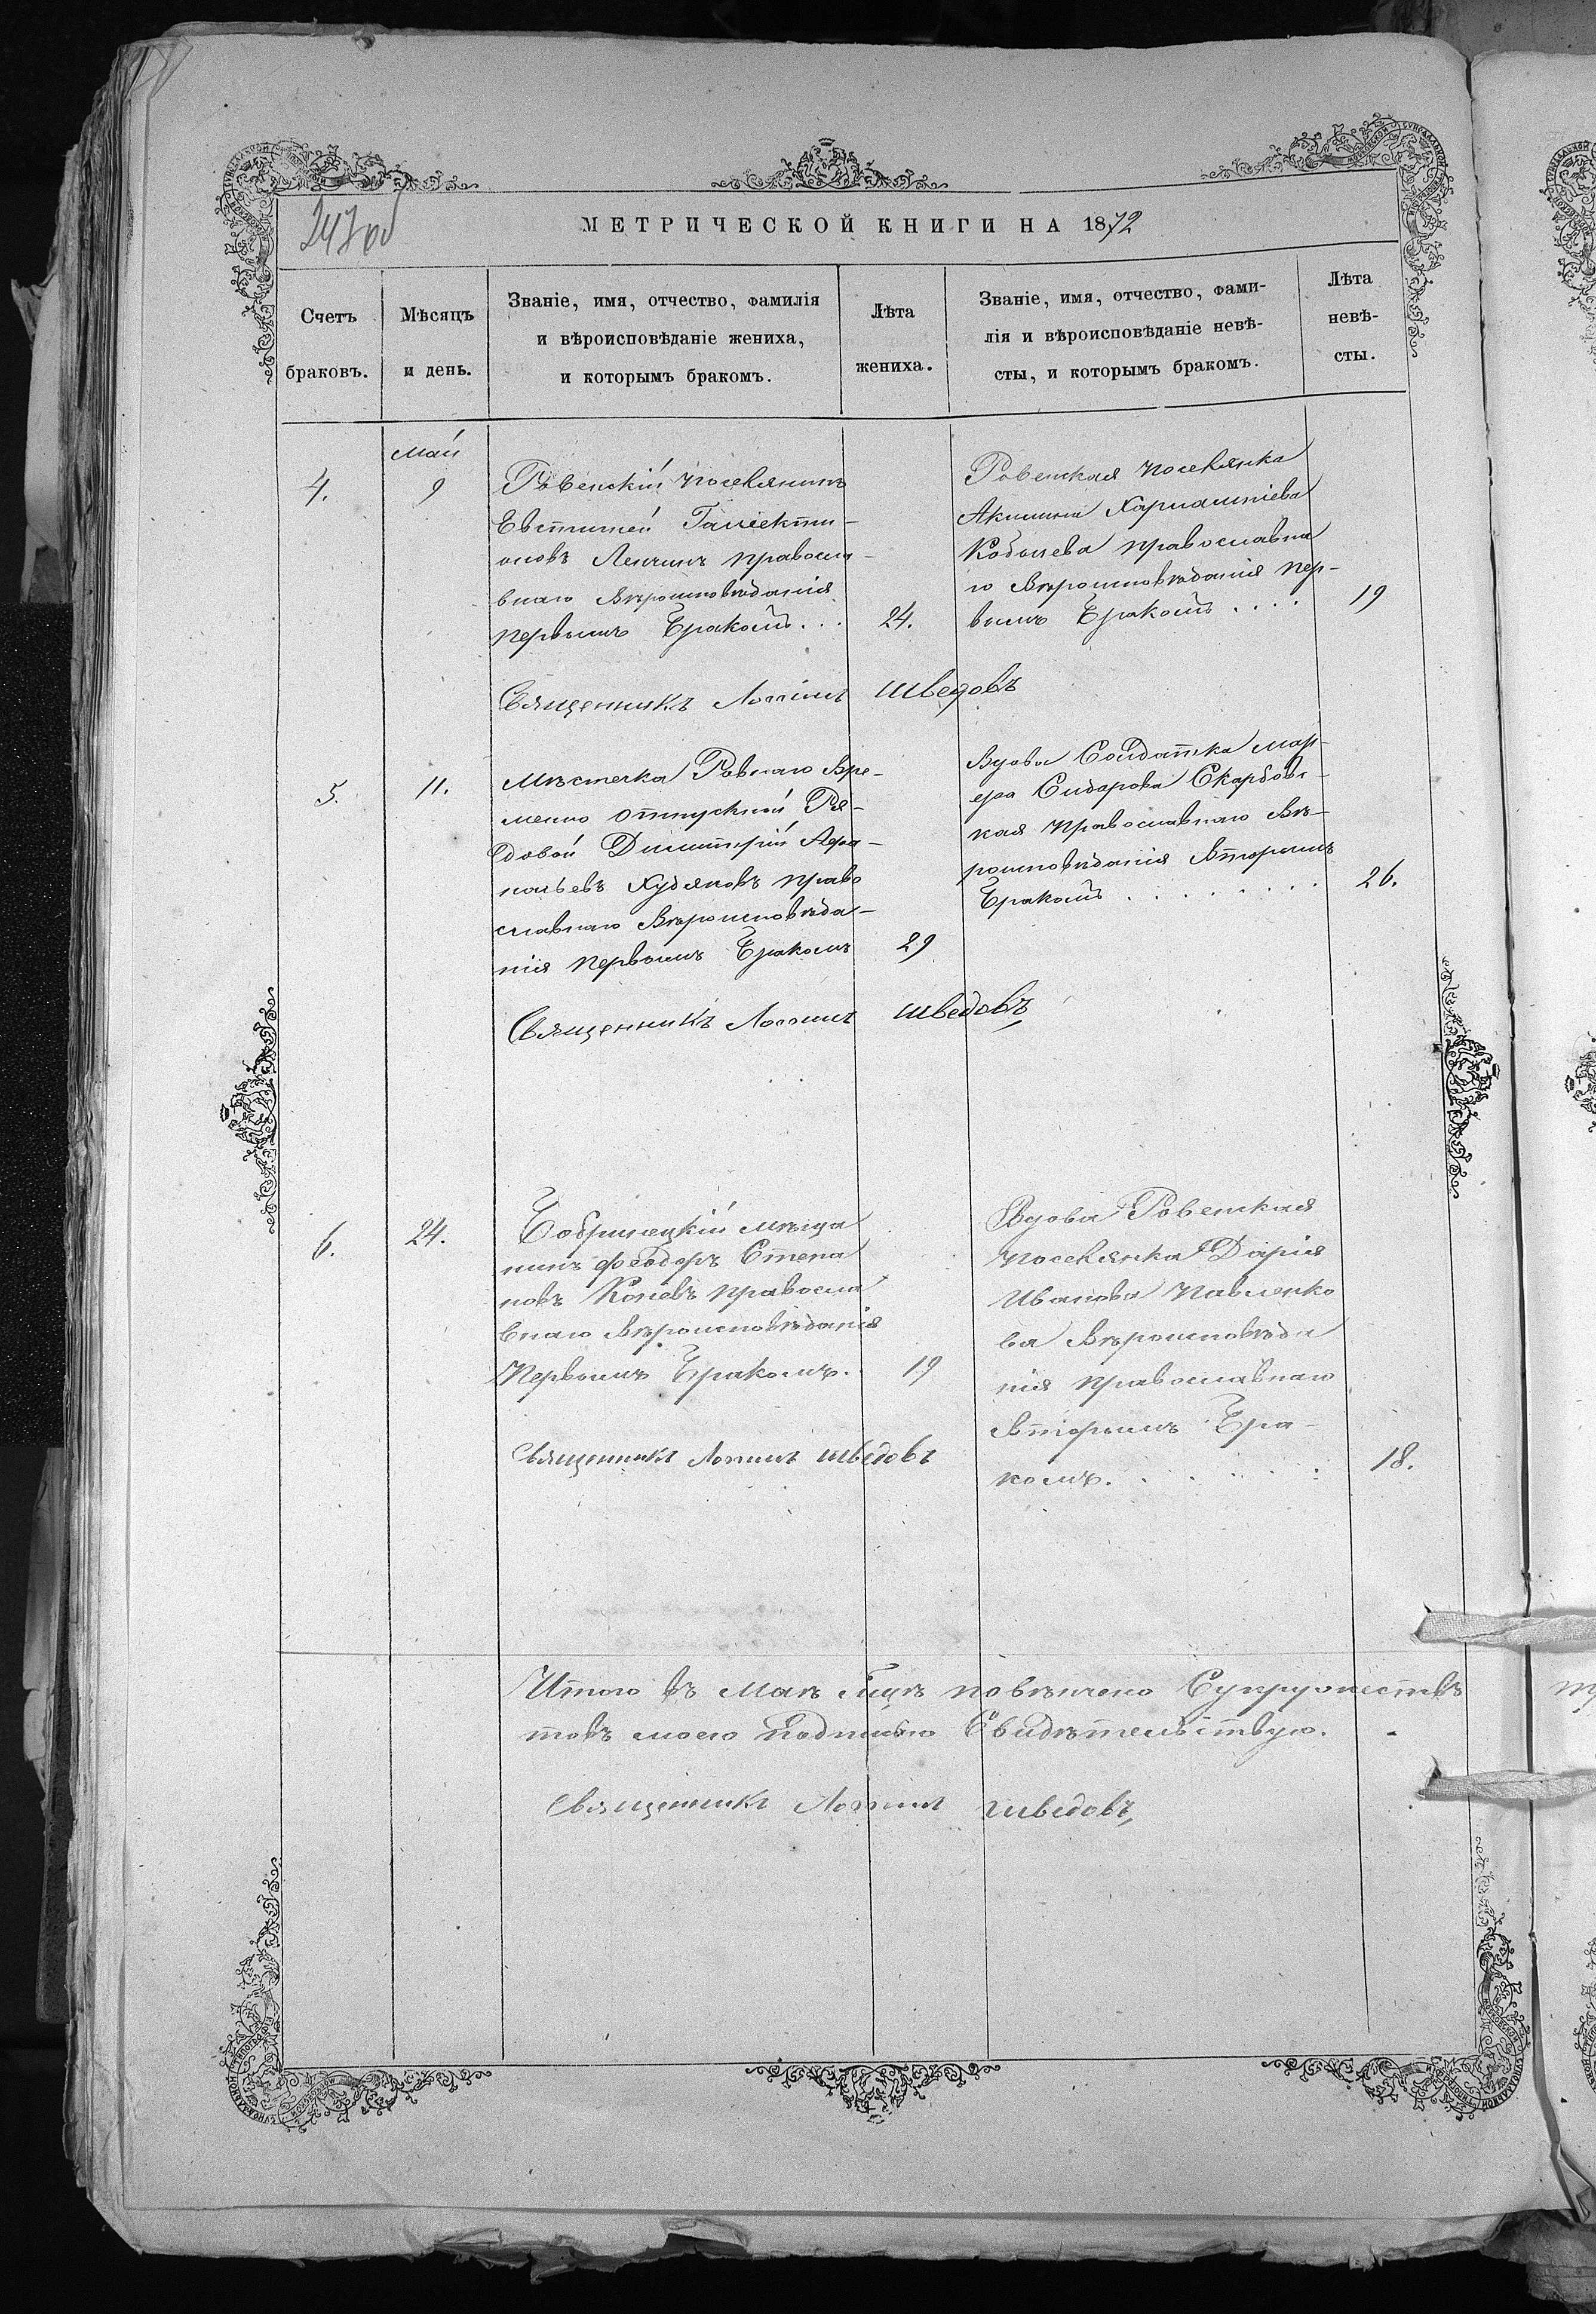 247 об
МЕТРИЧЕСКОЙ КНИГИ НА 1872
Счетъ
браковъ.
Мѣсяцъ
и день.
Званіе, имя, отчество, фамилія
и вѣроисповѣданіе жениха,
и которымъ бракомъ.
Лѣта
жениха.
Званіе, имя, отчество, фами-
лія и вѣроисповѣданіе невѣ-
сты, и которымъ бракомъ.
Лѣта
невѣ-
сты.
Май
4.
9
Ровенскій поселянинъ
Евстигней Галакти-
оновъ правосла-
внаго Вѣроисповѣданія
первымъ Бракомъ...
24.
Ровенская поселянка
Харлампіева
Кобычева православна
го Вѣроисповѣданія пер-
вымъ Бракомъ....
19
Священникъ Логгинъ Шведовъ
5.
11.
Мѣстечка Ровнаго Вре-
менно отпускной Ря-
довой Димитрій Афа-
насьевъ Худяковъ право
славнаго Вѣроисповѣда-
нія первымъ Бракомъ
29
Вдова Солдатка Мар-
Сидорова Скарбовс-
кая православнаго Вѣ-
роисповѣданія Вторымъ
Бракомъ........
26.
Священникъ Логгинъ Шведовъ
6.
24.
Бобринецкій мѣща
нинъ Феодоръ Степа
новъ правосла
внаго Вѣроисповѣданія
Первымъ Бракомъ.
19
Вдова Ровенская
поселянка Дарія
Иванова Павленко
ва Вѣроисповѣда
нія православнаго
Вторымъ Бра-
комъ.......
18.
Священникъ Логгинъ Шведовъ
Итого въ Маѣ повѣнчено Супружествъ
моею подписью Свидѣтельствую.
Священникъ Логгинъ Шведовъ